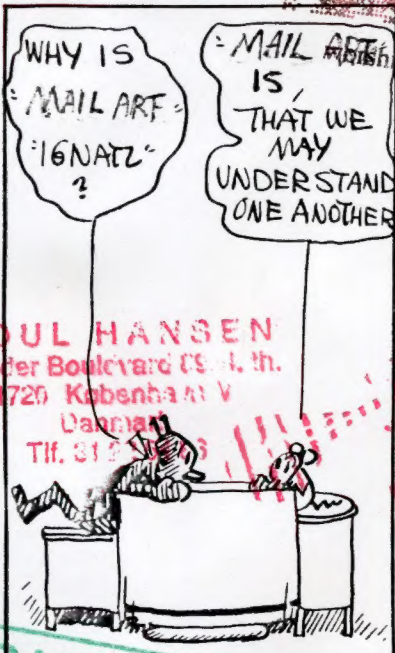 WHY IS
"MAIL ART"
"IGNATZ"
?
"MAIL ART"
IS,
THAT WE
MAY
UNDERSTAND
ONE ANOTHER
OUL HANSEN
der Boulevard
1720 København V
Danmark
Tlf. 31